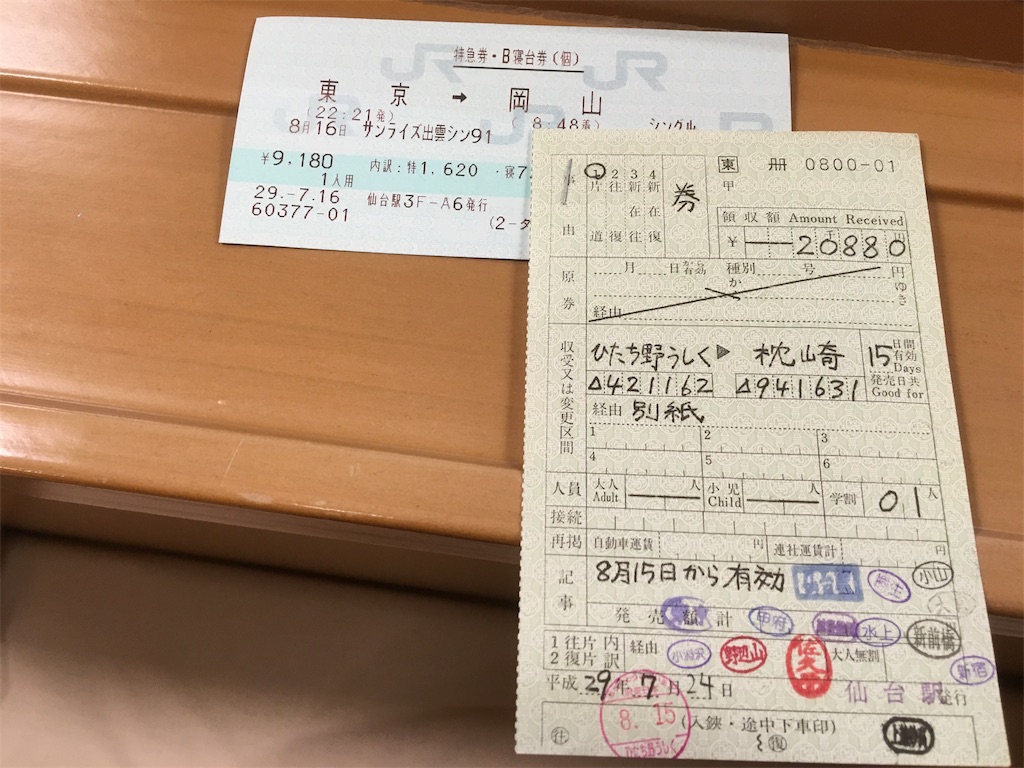 特急券・B寝台券(個)
東京 → 岡山
(22:21発) (8:48着) シングル
8月16日 サンライズ出雲シン91
¥9,180 内訳:特1,620・寝7
1人用
29.-7.16 仙台駅3F-A6発行
60377-01 (2-タ
東 冊 0800-01
1片道 2往復 3新在往 4新在復
券
甲
領収額 Amount Received
¥ 20880 円
事由
原券
月 日から有効 種別 号
か 円ゆき
経由
収受又は変更区間
ひたち野うしく ▶ 枕崎
15 日間有効 Days
△421162 △941631
発売日共 Good for
経由 別紙
1 2 3
4 5 6
人員 大人 Adult 人 小児 Child 人 学割 01人
接続
再掲 自動車運賃 円 連社運賃計 円
記事
8月15日から有効
小山
発売額計 甲府 水上 新前橋
1往片内 2復片訳 経由 小淵沢 野辺山 佐大市 大人無割
新宿
平成29年7月24日 仙台駅発行
8.15 ひたち野うしく
(入鋏・途中下車印)
往 復